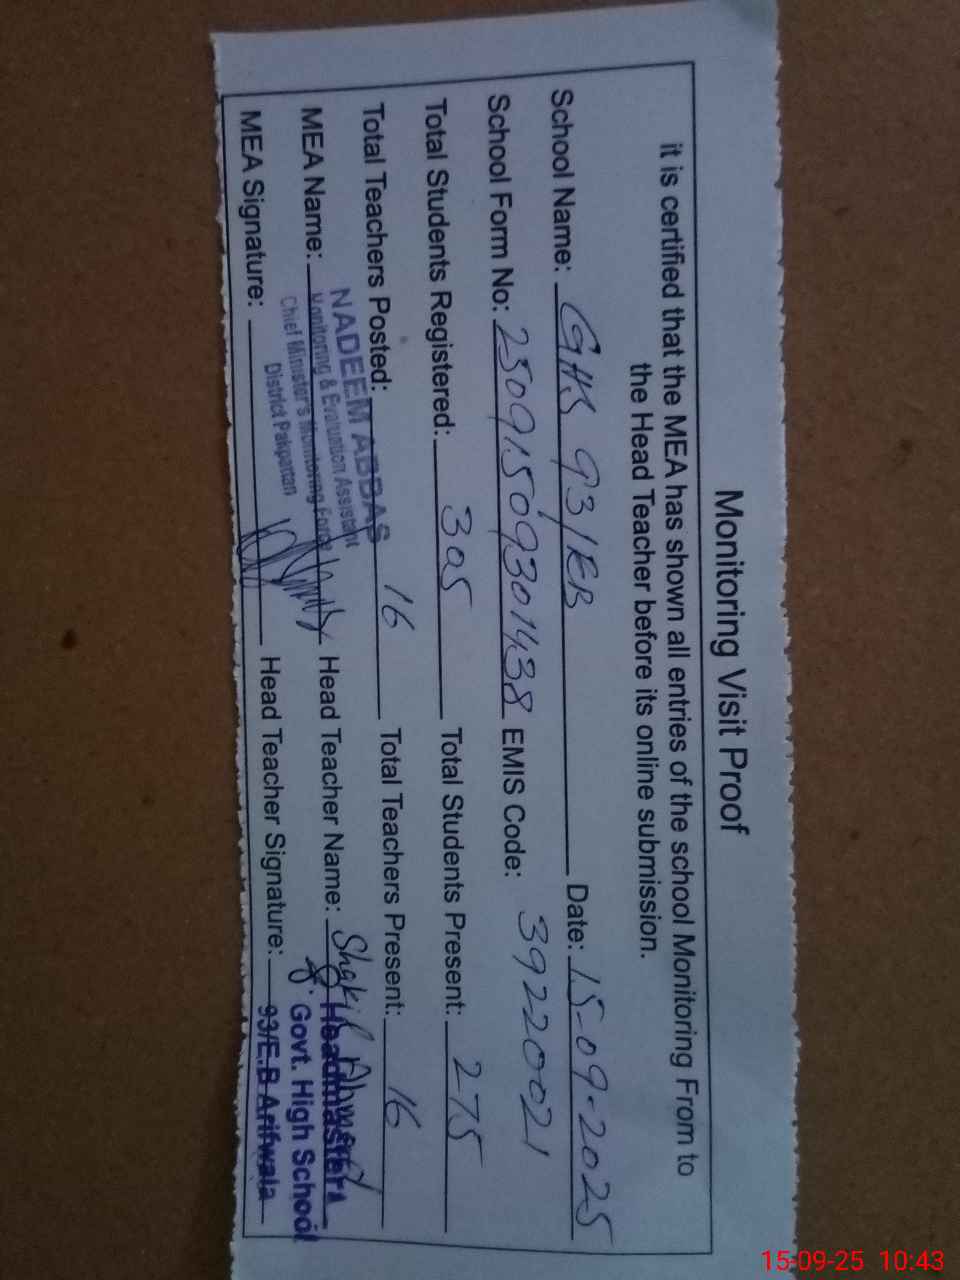 Monitoring Visit Proof
it is certified that the MEA has shown all entries of the school Monitoring From to
the Head Teacher before its online submission.
School Name: GHS 93/EB Date: 15-09-2025
School Form No: 25091509301438 EMIS Code: 39220021
Total Students Registered: 305 Total Students Present: 275
Total Teachers Posted: 16 Total Teachers Present: 16
NADEEM ABBAS
Monitoring & Evaluation Assistant
Chief Minister's Monitoring Force
District Pakpattan
MEA Name: Head Teacher Name: Shakil Ahmed
Headmaster
Govt. High School
93/E.B Arifwala
MEA Signature: Head Teacher Signature:
15-09-25 10:43